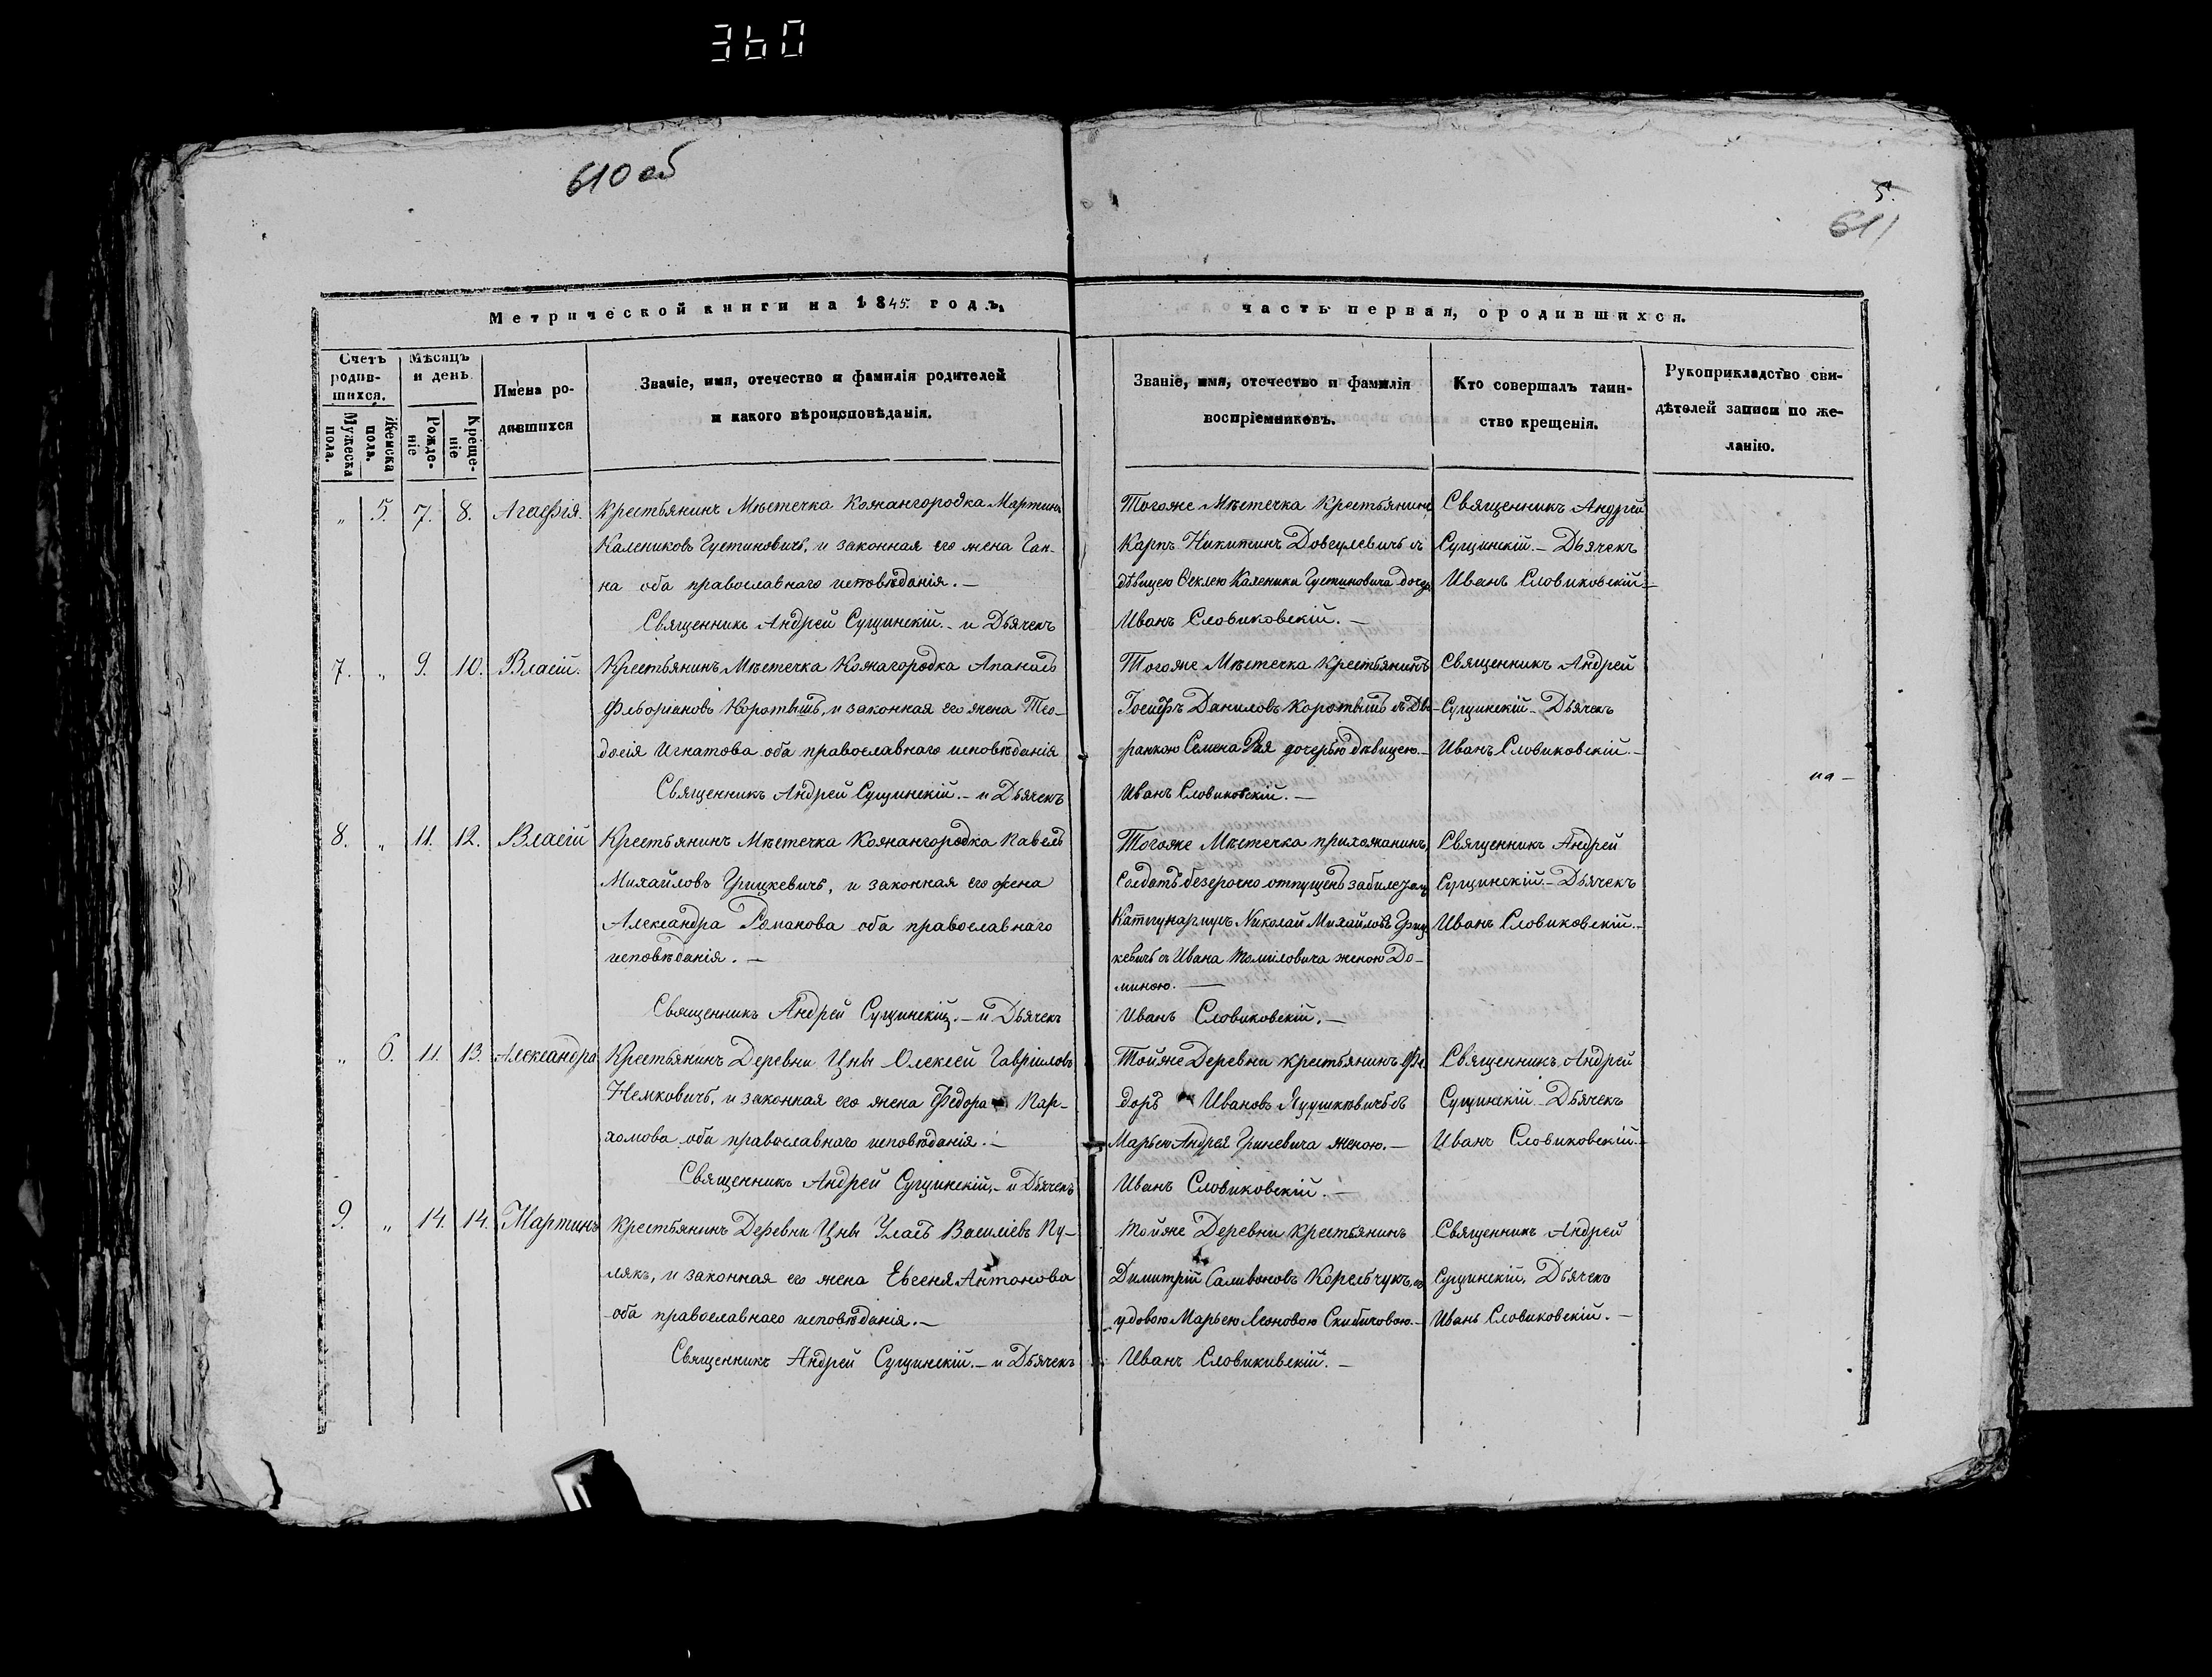 360
610 об
5.
611
Метрической книги на 1845. годъ,
часть первая, о родившихся.
Счетъ родив-шихся.
Мужеска пола.
Женска пола.
Мѣсяцъ и день
Рожде-ніе
Креще-ніе
Имена ро-
дившихся
Званіе, имя, отечество и фамилія родителей
и какого вѣроисповѣданія.
Званіе, имя, отечество и фамилія
воспріемниковъ.
Кто совершалъ таин-
ство крещенія.
Рукоприкладство сви-
дѣтелей записи по же-
ланію.
„ 5. 7. 8. Агафія.
Крестьянинъ Мѣстечка Кожангородка Мартинъ
Калениковъ Густиновичъ, и законная его жена Ган-
на оба православнаго исповѣданія. —
Священникъ Андрей Сущинскій. – и Дьячекъ
Тогоже Мѣстечка Крестьянинъ
Карпъ Никитинъ Довгулевичъ съ
дѣвицею Феклею Каленика Густиновича
Иванъ Словиковскій. —
Священникъ Андрей
Сущинскій. – Дьячекъ
Иванъ Словиковскій. –
7. „ 9. 10. Власій.
Крестьянинъ Мѣстечка Кожагородка Апанасъ
Флѣоріановъ Коротышъ, и законная его жена Тео-
досія Игнатова оба православнаго исповѣданія
Священникъ Андрей Сущинскій. – и Дьячекъ
Тогоже Мѣстечка Крестьянинъ
Іосифъ Даниловъ Коротышъ съ Дво-
ранкою Семена Рая дочерью дѣвицею. –
Иванъ Словиковскій. —
Священникъ Андрей
Сущинскій – Дьячекъ
Иванъ Словиковскій. –
на –
8. „ 11. 12. Власій
Крестьянинъ Мѣстечка Кожангородка Павелъ
Михайловъ Грицкевичъ, и законная его жена
Александра Романова оба православнаго
исповѣданія. —
Священникъ Андрей Сущинскій. – и Дьячекъ
Тогоже Мѣстечка прихожанинъ,
Солдатъ безсрочно отпущенъ
Николай Михайловъ Гриц
кевичъ съ Ивана Томиловича женою До-
миною. —
Иванъ Словиковскій. —
Священникъ Андрей
Сущинскій. – Дьячекъ
Иванъ Словиковскій. –
„ 6. 11. 13. Александра
Крестьянинъ Деревни Цны Олексей Гавріиловъ
Немковичъ, и законная его жена Федора Пар-
хомова оба православнаго исповѣданія. –
Священникъ Андрей Сущинскій, – и Дьячекъ
Тойже Деревни крестьянинъ Фе-
доръ Ивановъ съ
Марьею Андрея Гриневича женою. —
Иванъ Словиковскій. —
Священникъ Андрей
Сущинскій – Дьячекъ
Иванъ Словиковскій. –
9. „ 14. 14. Мартинъ
Крестьянинъ Деревни Цны Уласъ Василіевъ Пу-
лякъ, и законная его жена Евсеня Антонова
оба православнаго исповѣданія. —
Священникъ Андрей Сущинскій. – и Дьячекъ
Тойже Деревни Крестьянинъ
Димитрій Саливоновъ Корельчукъ, съ
удовою Марьею Леоновою Скибичовою. –
Иванъ Словикивскій. –
Священникъ Андрей
Сущинскій, Дьячекъ
Иванъ Словиковскій. –